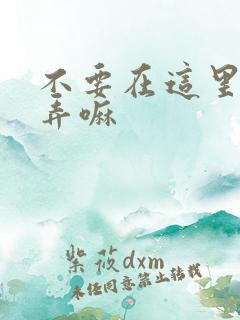 不要在這里
弄嘛
紫莜dxm
未经同意禁止转载